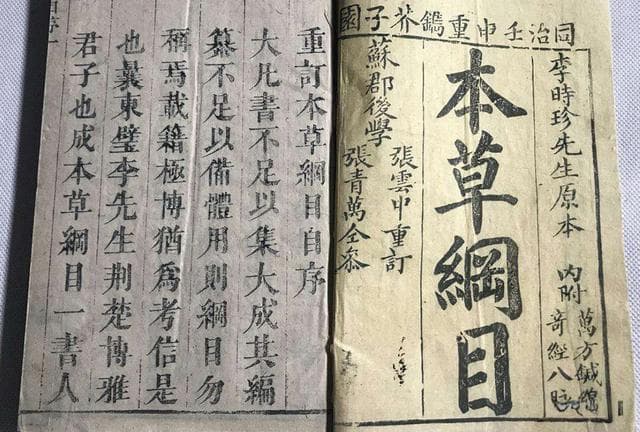 同治壬申重鐫芥子園
李時珍先生原本
內附
萬方鍼線
奇經八脉
本草綱目
蘇郡後學
張雲中重訂
張青萬仝參
重訂本草綱目自序
大凡書不足以集大成其編
纂不足以備體用則綱目勿
稱焉載籍極博猶爲考信是
也曩東璧李先生荆楚博雅
君子也成本草綱目一書人